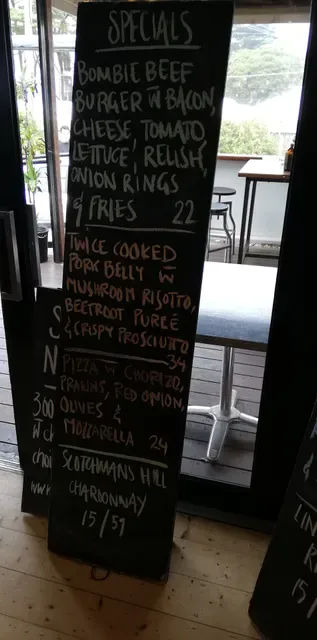 SPECIALS
BOMBIE BEEF
BURGER W̄ BACON,
CHEESE, TOMATO,
LETTUCE, RELISH,
ONION RINGS
& FRIES 22
TWICE COOKED
PORK BELLY W̄
MUSHROOM RISOTTO,
BEETROOT PUREÉ
& CRISPY PROSCIUTTO
34
PIZZA W CHORIZO,
PRAWNS, RED ONION,
OLIVES &
MOZZARELLA 24
SCOTCHMANS HILL
CHARDONNAY
15/59
S
N
300